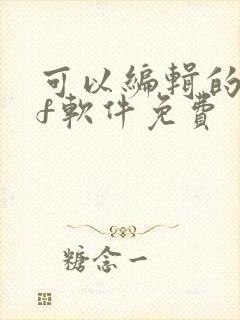 可以編輯的
f軟件免費
糖念一